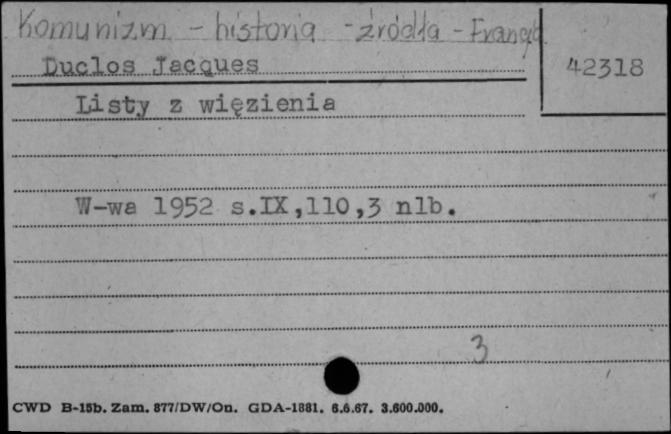 Komunizm - historia - źródła - Francja
Duclos Jacques
42318
Listy z więzienia
W-wa 1952 s.IX,110,3 nlb.
3
CWD B-15b. Zam. 877/DW/On. GDA-1881. 6.6.67. 3.600.000.